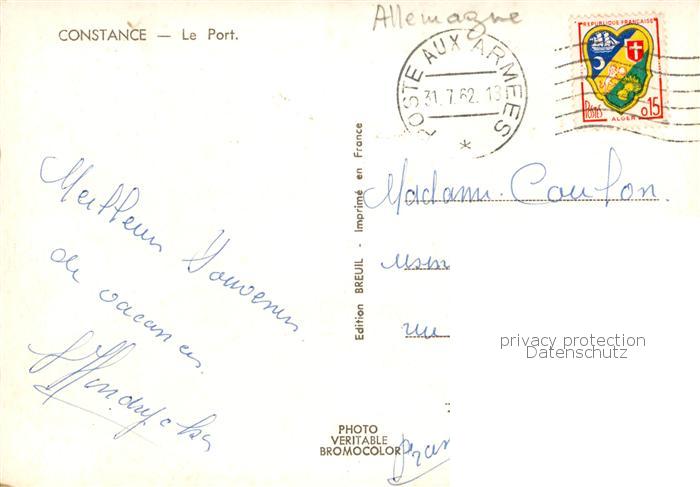 CONSTANCE — Le Port.
Allemagne
POSTE AUX ARMEES
31.7.62. 18
*
REPUBLIQUE FRANÇAISE
POSTES 0,15
ALGER
Meilleurs Souvenirs
de vacances.
Madame Coulon.
rue
Edition BREUIL - Imprimé en France
PHOTO
VERITABLE
BROMOCOLOR
privacy protection
Datenschutz